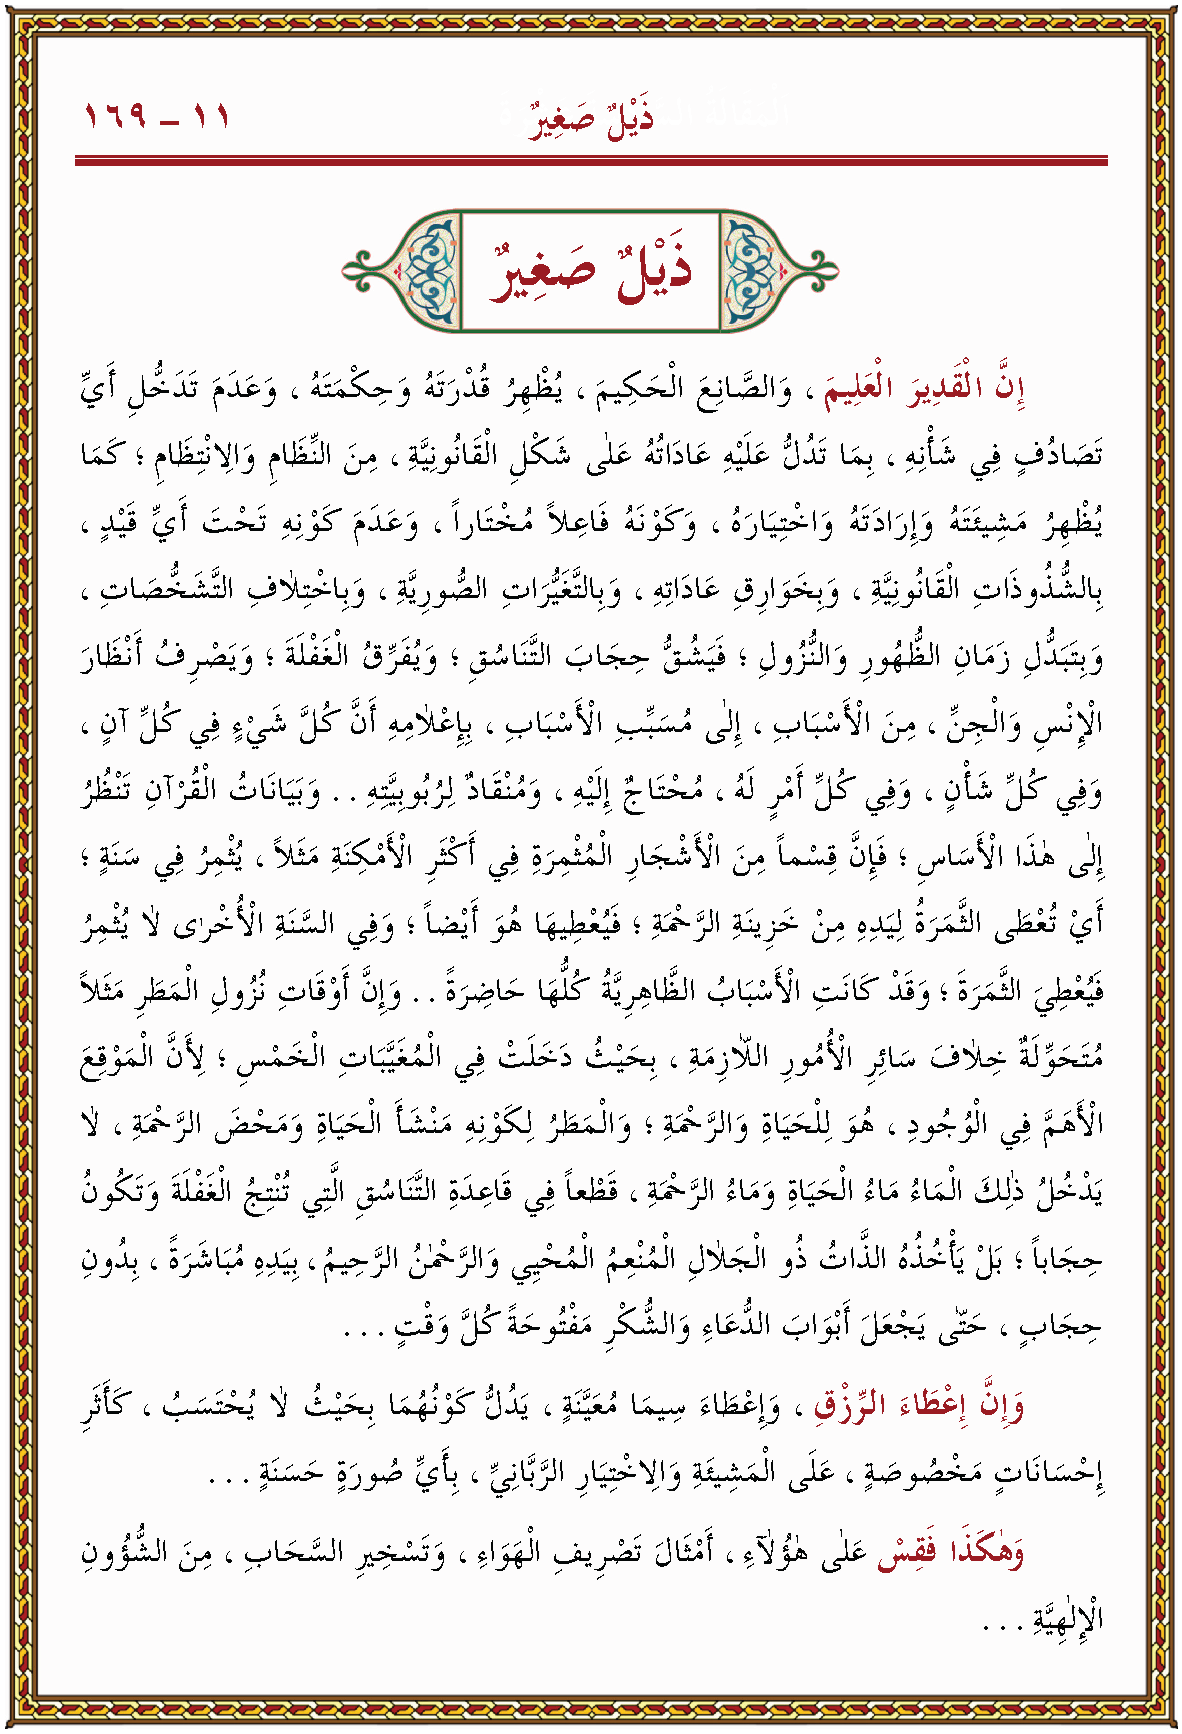 ذَيْلٌ صَغِيرٌ
١١ – ١٦٩
ذَيْلٌ صَغِيرٌ
إِنَّ الْقَدِيرَ الْعَلِيمَ ، وَالصَّانِعَ الْحَكِيمَ ، يُظْهِرُ قُدْرَتَهُ وَحِكْمَتَهُ ، وَعَدَمَ تَدَخُّلِ أَيِّ
تَصَادُفٍ فِي شَأْنِهِ ، بِمَا تَدُلُّ عَلَيْهِ عَادَاتُهُ عَلٰى شَكْلِ الْقَانُونِيَّةِ ، مِنَ النِّظَامِ وَالِانْتِظَامِ ؛ كَمَا
يُظْهِرُ مَشِيئَتَهُ وَإِرَادَتَهُ وَاخْتِيَارَهُ ، وَكَوْنَهُ فَاعِلاً مُخْتَاراً ، وَعَدَمَ كَوْنِهِ تَحْتَ أَيِّ قَيْدٍ ،
بِالشُّذُوذَاتِ الْقَانُونِيَّةِ ، وَبِخَوَارِقِ عَادَاتِهِ ، وَبِالتَّغَيُّرَاتِ الصُّورِيَّةِ ، وَبِاخْتِلَافِ التَّشَخُّصَاتِ ،
وَبِتَبَدُّلِ زَمَانِ الظُّهُورِ وَالنُّزُولِ ؛ فَيَشُقُّ حِجَابَ التَّنَاسُقِ ؛ وَيُفَرِّقُ الْغَفْلَةَ ؛ وَيَصْرِفُ أَنْظَارَ
الْإِنْسِ وَالْجِنِّ ، مِنَ الْأَسْبَابِ ، إِلٰى مُسَبِّبِ الْأَسْبَابِ ، بِإِعْلَامِهِ أَنَّ كُلَّ شَيْءٍ فِي كُلِّ آنٍ ،
وَفِي كُلِّ شَأْنٍ ، وَفِي كُلِّ أَمْرٍ لَهُ ، مُحْتَاجٌ إِلَيْهِ ، وَمُنْقَادٌ لِرُبُوبِيَّتِهِ . . وَبَيَانَاتُ الْقُرْآنِ تَنْظُرُ
إِلٰى هٰذَا الْأَسَاسِ ؛ فَإِنَّ قِسْماً مِنَ الْأَشْجَارِ الْمُثْمِرَةِ فِي أَكْثَرِ الْأَمْكِنَةِ مَثَلاً ، يُثْمِرُ فِي سَنَةٍ ؛
أَيْ تُعْطَى الثَّمَرَةُ لِيَدِهِ مِنْ خَزِينَةِ الرَّحْمَةِ ؛ فَيُعْطِيهَا هُوَ أَيْضاً ؛ وَفِي السَّنَةِ الْأُخْرٰى لَا يُثْمِرُ
فَيُعْطِيَ الثَّمَرَةَ ؛ وَقَدْ كَانَتِ الْأَسْبَابُ الظَّاهِرِيَّةُ كُلُّهَا حَاضِرَةً . . وَإِنَّ أَوْقَاتِ نُزُولِ الْمَطَرِ مَثَلاً
مُتَحَوِّلَةٌ خِلَافَ سَائِرِ الْأُمُورِ اللَّازِمَةِ ، بِحَيْثُ دَخَلَتْ فِي الْمُغَيَّبَاتِ الْخَمْسِ ؛ لِأَنَّ الْمَوْقِعَ
الْأَهَمَّ فِي الْوُجُودِ ، هُوَ لِلْحَيَاةِ وَالرَّحْمَةِ ؛ وَالْمَطَرُ لِكَوْنِهِ مَنْشَأَ الْحَيَاةِ وَمَحْضَ الرَّحْمَةِ ، لَا
يَدْخُلُ ذٰلِكَ الْمَاءُ مَاءُ الْحَيَاةِ وَمَاءُ الرَّحْمَةِ ، قَطْعاً فِي قَاعِدَةِ التَّنَاسُقِ الَّتِي تُنْتِجُ الْغَفْلَةَ وَتَكُونُ
حِجَاباً ؛ بَلْ يَأْخُذُهُ الذَّاتُ ذُو الْجَلَالِ الْمُنْعِمُ الْمُحْيِي وَالرَّحْمٰنُ الرَّحِيمُ ، بِيَدِهِ مُبَاشَرَةً ، بِدُونِ
حِجَابٍ ، حَتّٰى يَجْعَلَ أَبْوَابَ الدُّعَاءِ وَالشُّكْرِ مَفْتُوحَةً كُلَّ وَقْتٍ . . .
وَإِنَّ إِعْطَاءَ الرِّزْقِ ، وَإِعْطَاءَ سِيمَا مُعَيَّنَةٍ ، يَدُلُّ كَوْنُهُمَا بِحَيْثُ لَا يُحْتَسَبُ ، كَأَثَرِ
إِحْسَانَاتٍ مَخْصُوصَةٍ ، عَلَى الْمَشِيئَةِ وَالِاخْتِيَارِ الرَّبَّانِيِّ ، بِأَيِّ صُورَةٍ حَسَنَةٍ . . .
وَهٰكَذَا فَقِسْ عَلٰى هٰؤُلَآءِ ، أَمْثَالَ تَصْرِيفِ الْهَوَاءِ ، وَتَسْخِيرِ السَّحَابِ ، مِنَ الشُّؤُونِ
الْإِلٰهِيَّةِ . . .